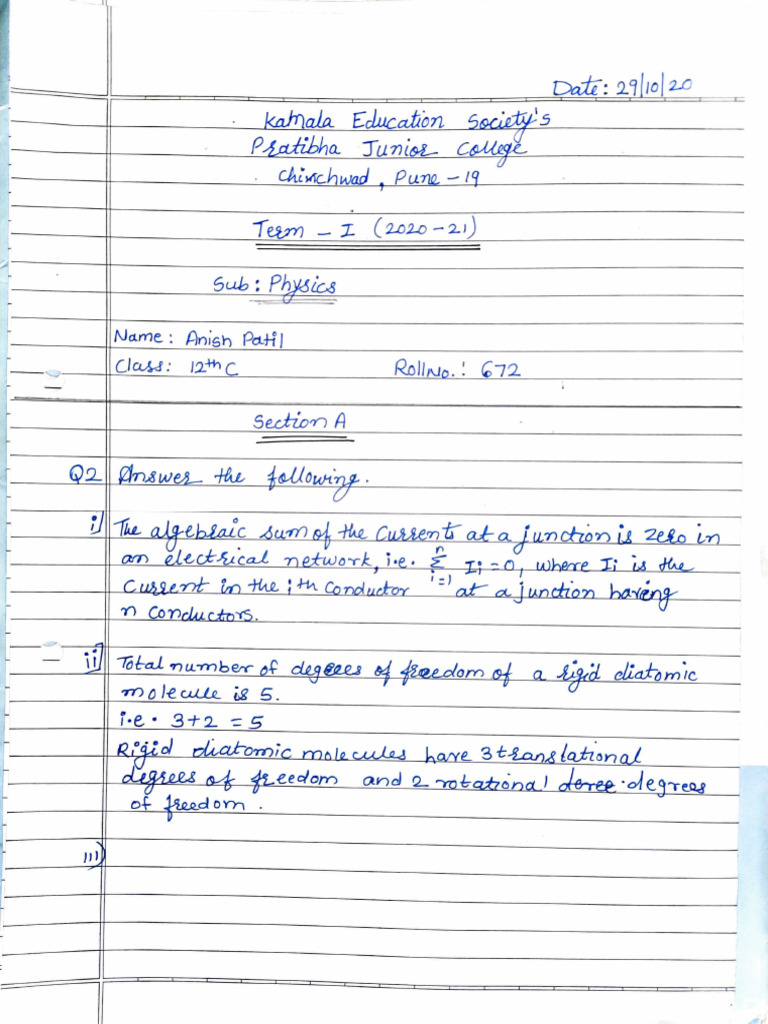 Date: 29/10/20
Kamala Education Society's
Pratibha Junior College
Chinchwad, Pune - 19
Term - I (2020-21)
Sub: Physics
Name: Anish Patil
Class: 12th C Roll No.: 672
Section A
Q2 Answer the following.
i] The algebraic sum of the currents at a junction is zero in
an electrical network, i.e. n Σ i=1 Ii = 0, where Ii is the
current in the ith conductor at a junction having
n conductors.
ii] Total number of degrees of freedom of a rigid diatomic
molecule is 5.
i.e. 3+2 = 5
Rigid diatomic molecules have 3 translational
degrees of freedom and 2 rotational degrees
of freedom.
iii)